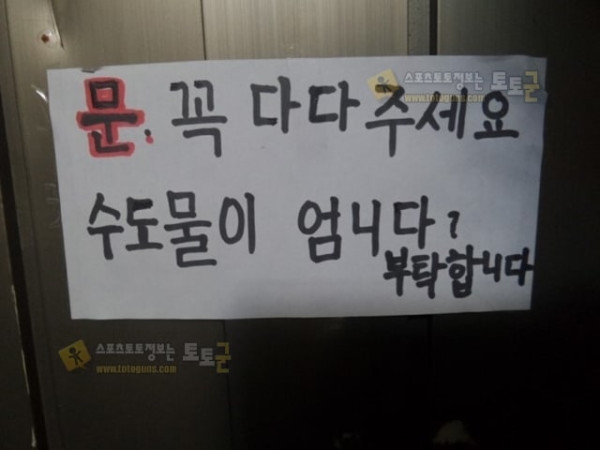 문. 꼭 다다주세요
수도물이 엄니다?
부탁합니다
스포츠토토정보는 토토군
www.totoguns.com
스포츠토토정보는 토토군
www.totoguns.com